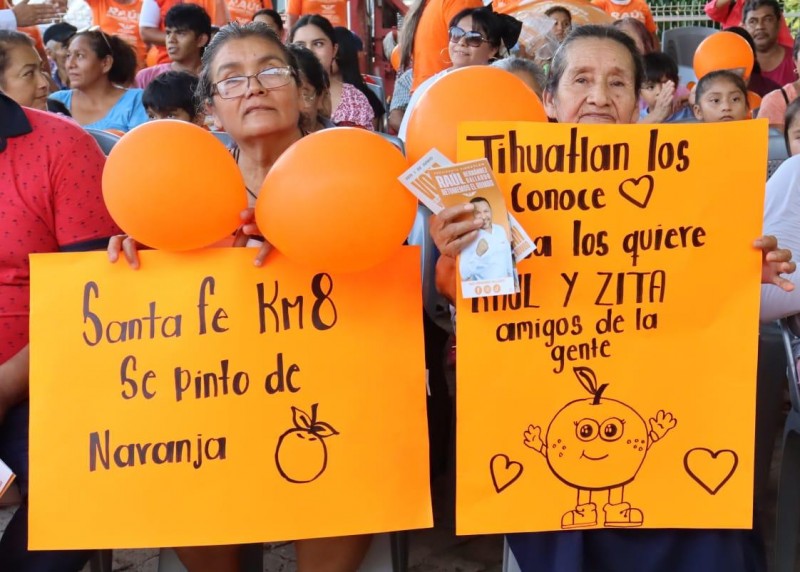 Santa fe Km8
Se pinto de
Naranja
Tihuatlan los
Conoce
a los quiere
RAUL Y ZITA
amigos de la
gente
RAUL